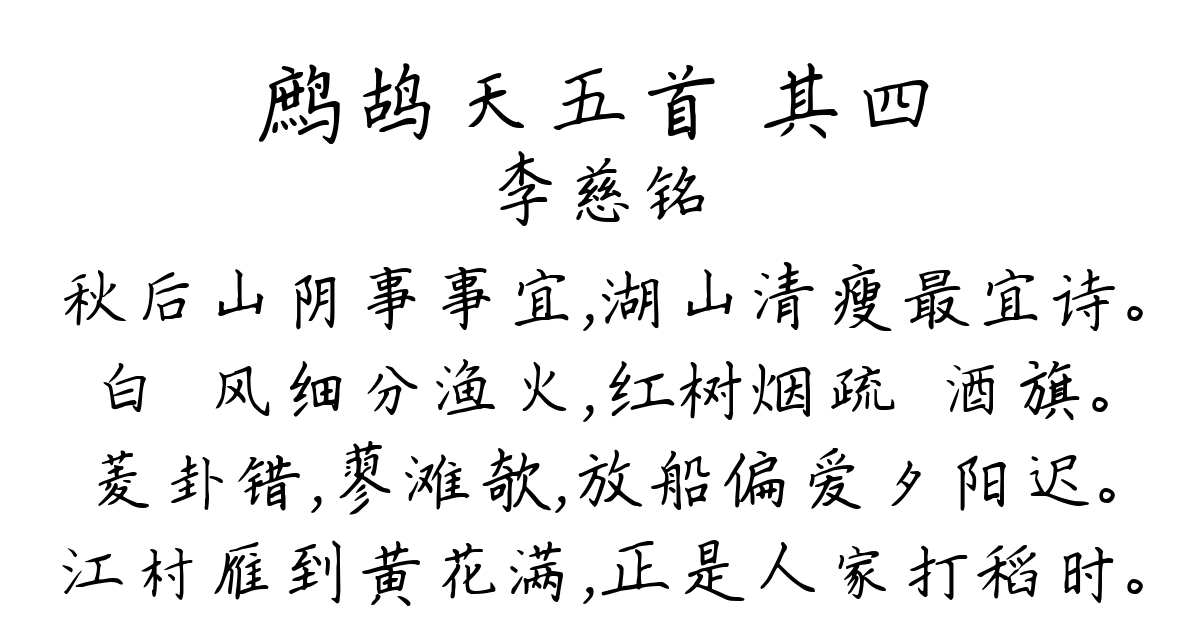 鹧鸪天五首 其四
李慈铭
秋后山阴事事宜,湖山清瘦最宜诗。
白 风细分渔火,红树烟疏 酒旗。
菱卦错,蓼滩欹,放船偏爱夕阳迟。
江村雁到黄花满,正是人家打稻时。